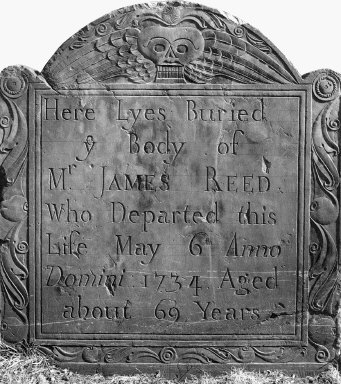 Here Lyes Buried
yᵉ Body of
Mʳ JAMES REED
Who Departed this
Life May 6ᵗʰ Anno
Domini 1734 Aged
about 69 Years